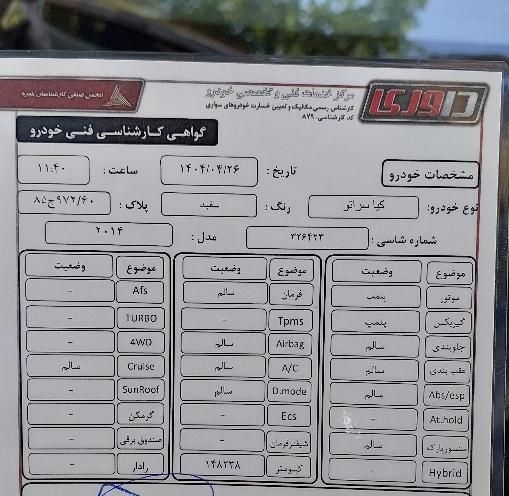 داوری
مرکز خدمات فنی و تخصصی خودرو
کارشناس رسمی مکانیک و تعیین خسارت خودروهای سواری
کد کارشناسی: ۸۷۹
انجمن صنفی کارشناسان خبره
گواهی کارشناسی فنی خودرو
مشخصات خودرو تاریخ: ۱۴۰۴/۰۴/۲۶ ساعت: ۱۱:۴۰
نوع خودرو: کیا سراتو رنگ: سفید پلاک: ۸۵ج۹۷۲/۶۰
شماره شاسی: ۳۲۶۴۲۳ مدل: ۲۰۱۴
موضوع وضعیت موضوع وضعیت موضوع وضعیت
موتور پلمپ فرمان سالم Afs -
گیربکس پلمپ Tpms - TURBO -
جلوبندی سالم Airbag سالم 4WD -
عقب بندی سالم A/C سالم Cruise سالم
Abs/esp سالم D.mode سالم SunRoof -
At.hold - Ecs - گرمکن -
سنسورپارک سالم شیفترفرمان - صندوق برقی -
Hybrid - کیلومتر ۱۴۸۲۳۸ رادار -